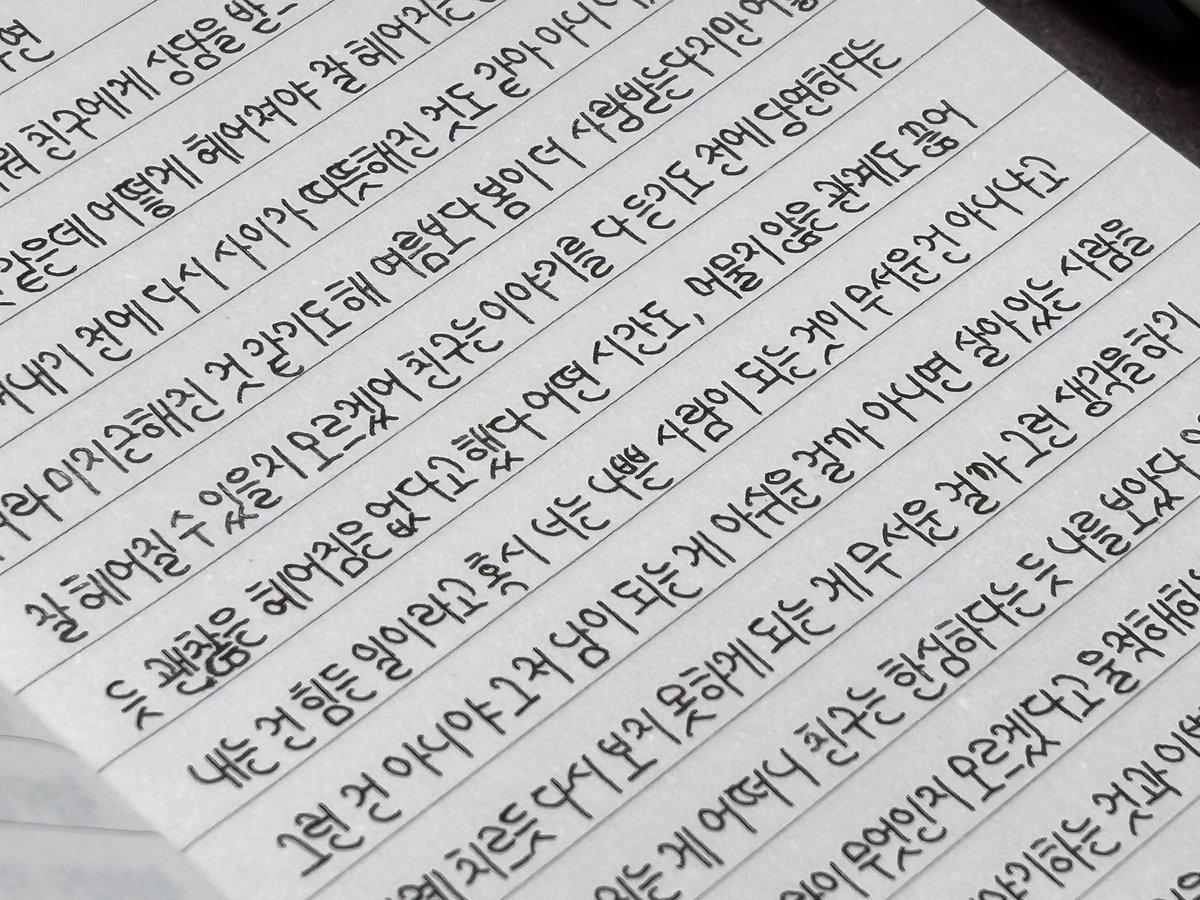 친구에게 상담을
같은데 어떻게 헤어져야 잘 헤어지는
내기 전에 다시 사이가 따뜻해진 것도 같아 아니
미지근해진 것 같기도 해 여름보다 봄이 더 사랑받는다지만
잘 헤어질 수 있을지 모르겠어 친구는 이야기를 다 듣기도 전에 당연하다는
듯 괜찮은 헤어짐은 없다고 했다 어떤 시간도, 머물지 않을 관계도 끊어
내는 건 힘든 일이라고 혹시 너는 나쁜 사람이 되는 것이 무서운 건 아니냐고
그런 건 아니야 그저 남이 되는 게 아쉬운 걸까 아니면 살아 있는 사람을
치르듯 다시 보지 못하게 되는 게 무서운 걸까 그런 생각을 하기
게 어떠니 친구는 한심하다는 듯 나를 보았다
무엇인지 모르겠다고 울적해하
것과